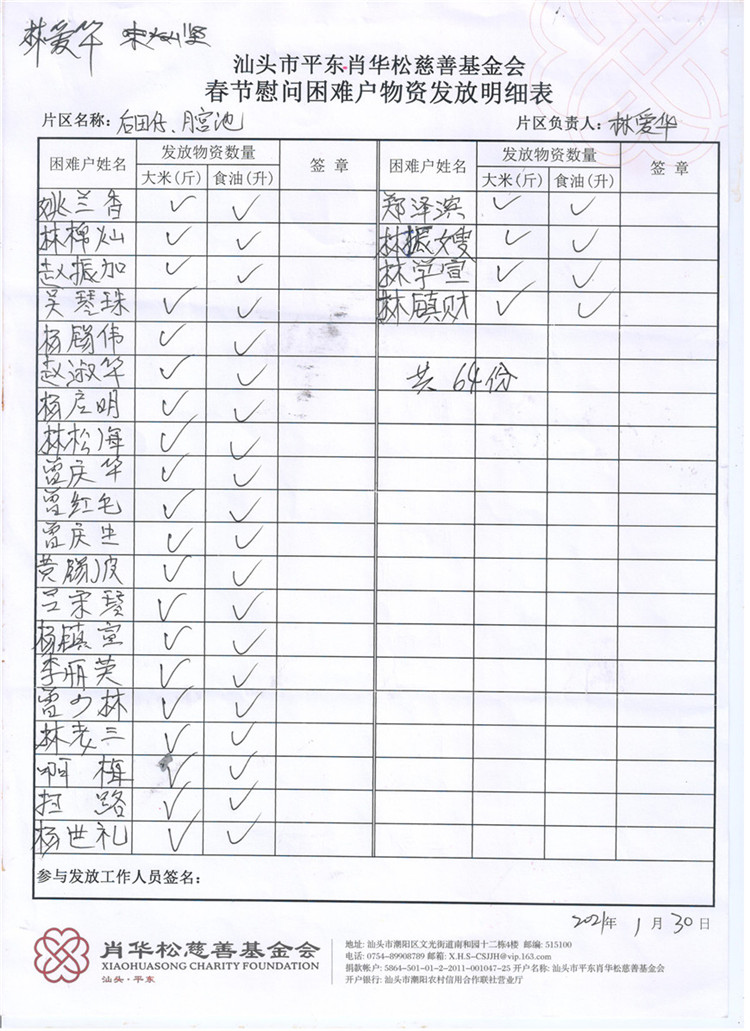 林爱华
汕头市平东肖华松慈善基金会
春节慰问困难户物资发放明细表
片区名称：后田仔、月宫池 片区负责人：林爱华
困难户姓名 发放物资数量 签 章 困难户姓名 发放物资数量 签 章
大米(斤) 食油(升) 大米(斤) 食油(升)
姚兰香 ✓ ✓ 郑泽滨 ✓ ✓
林棉灿 ✓ ✓ 林振嫂 ✓ ✓
赵振加 ✓ ✓ 林学宣 ✓ ✓
吴琴珠 ✓ ✓ 林镇财 ✓ ✓
杨锡伟 ✓ ✓
赵淑华 ✓ ✓ 共64份
杨应明 ✓ ✓
林松海 ✓ ✓
曾庆华 ✓ ✓
曾红毛 ✓ ✓
曾庆忠 ✓ ✓
黄锡波 ✓ ✓
✓ ✓
杨镇宣 ✓ ✓
李丽英 ✓ ✓
曾少林 ✓ ✓
林老三 ✓ ✓
啊梅 ✓ ✓
✓ ✓
杨世礼 ✓ ✓
参与发放工作人员签名：
2021年 1月30日
肖华松慈善基金会
XIAOHUASONG CHARITY FOUNDATION
汕头·平东
地址: 汕头市潮阳区文光街道南和园十二栋4楼 邮编: 515100
电话: 0754-89908789 邮箱: X.H.S-CSJJH@vip.163.com
捐款帐户: 5864-501-01-2-2011-001047-25 开户名称: 汕头市平东肖华松慈善基金会
开户银行: 汕头市潮阳农村信用合作联社营业厅